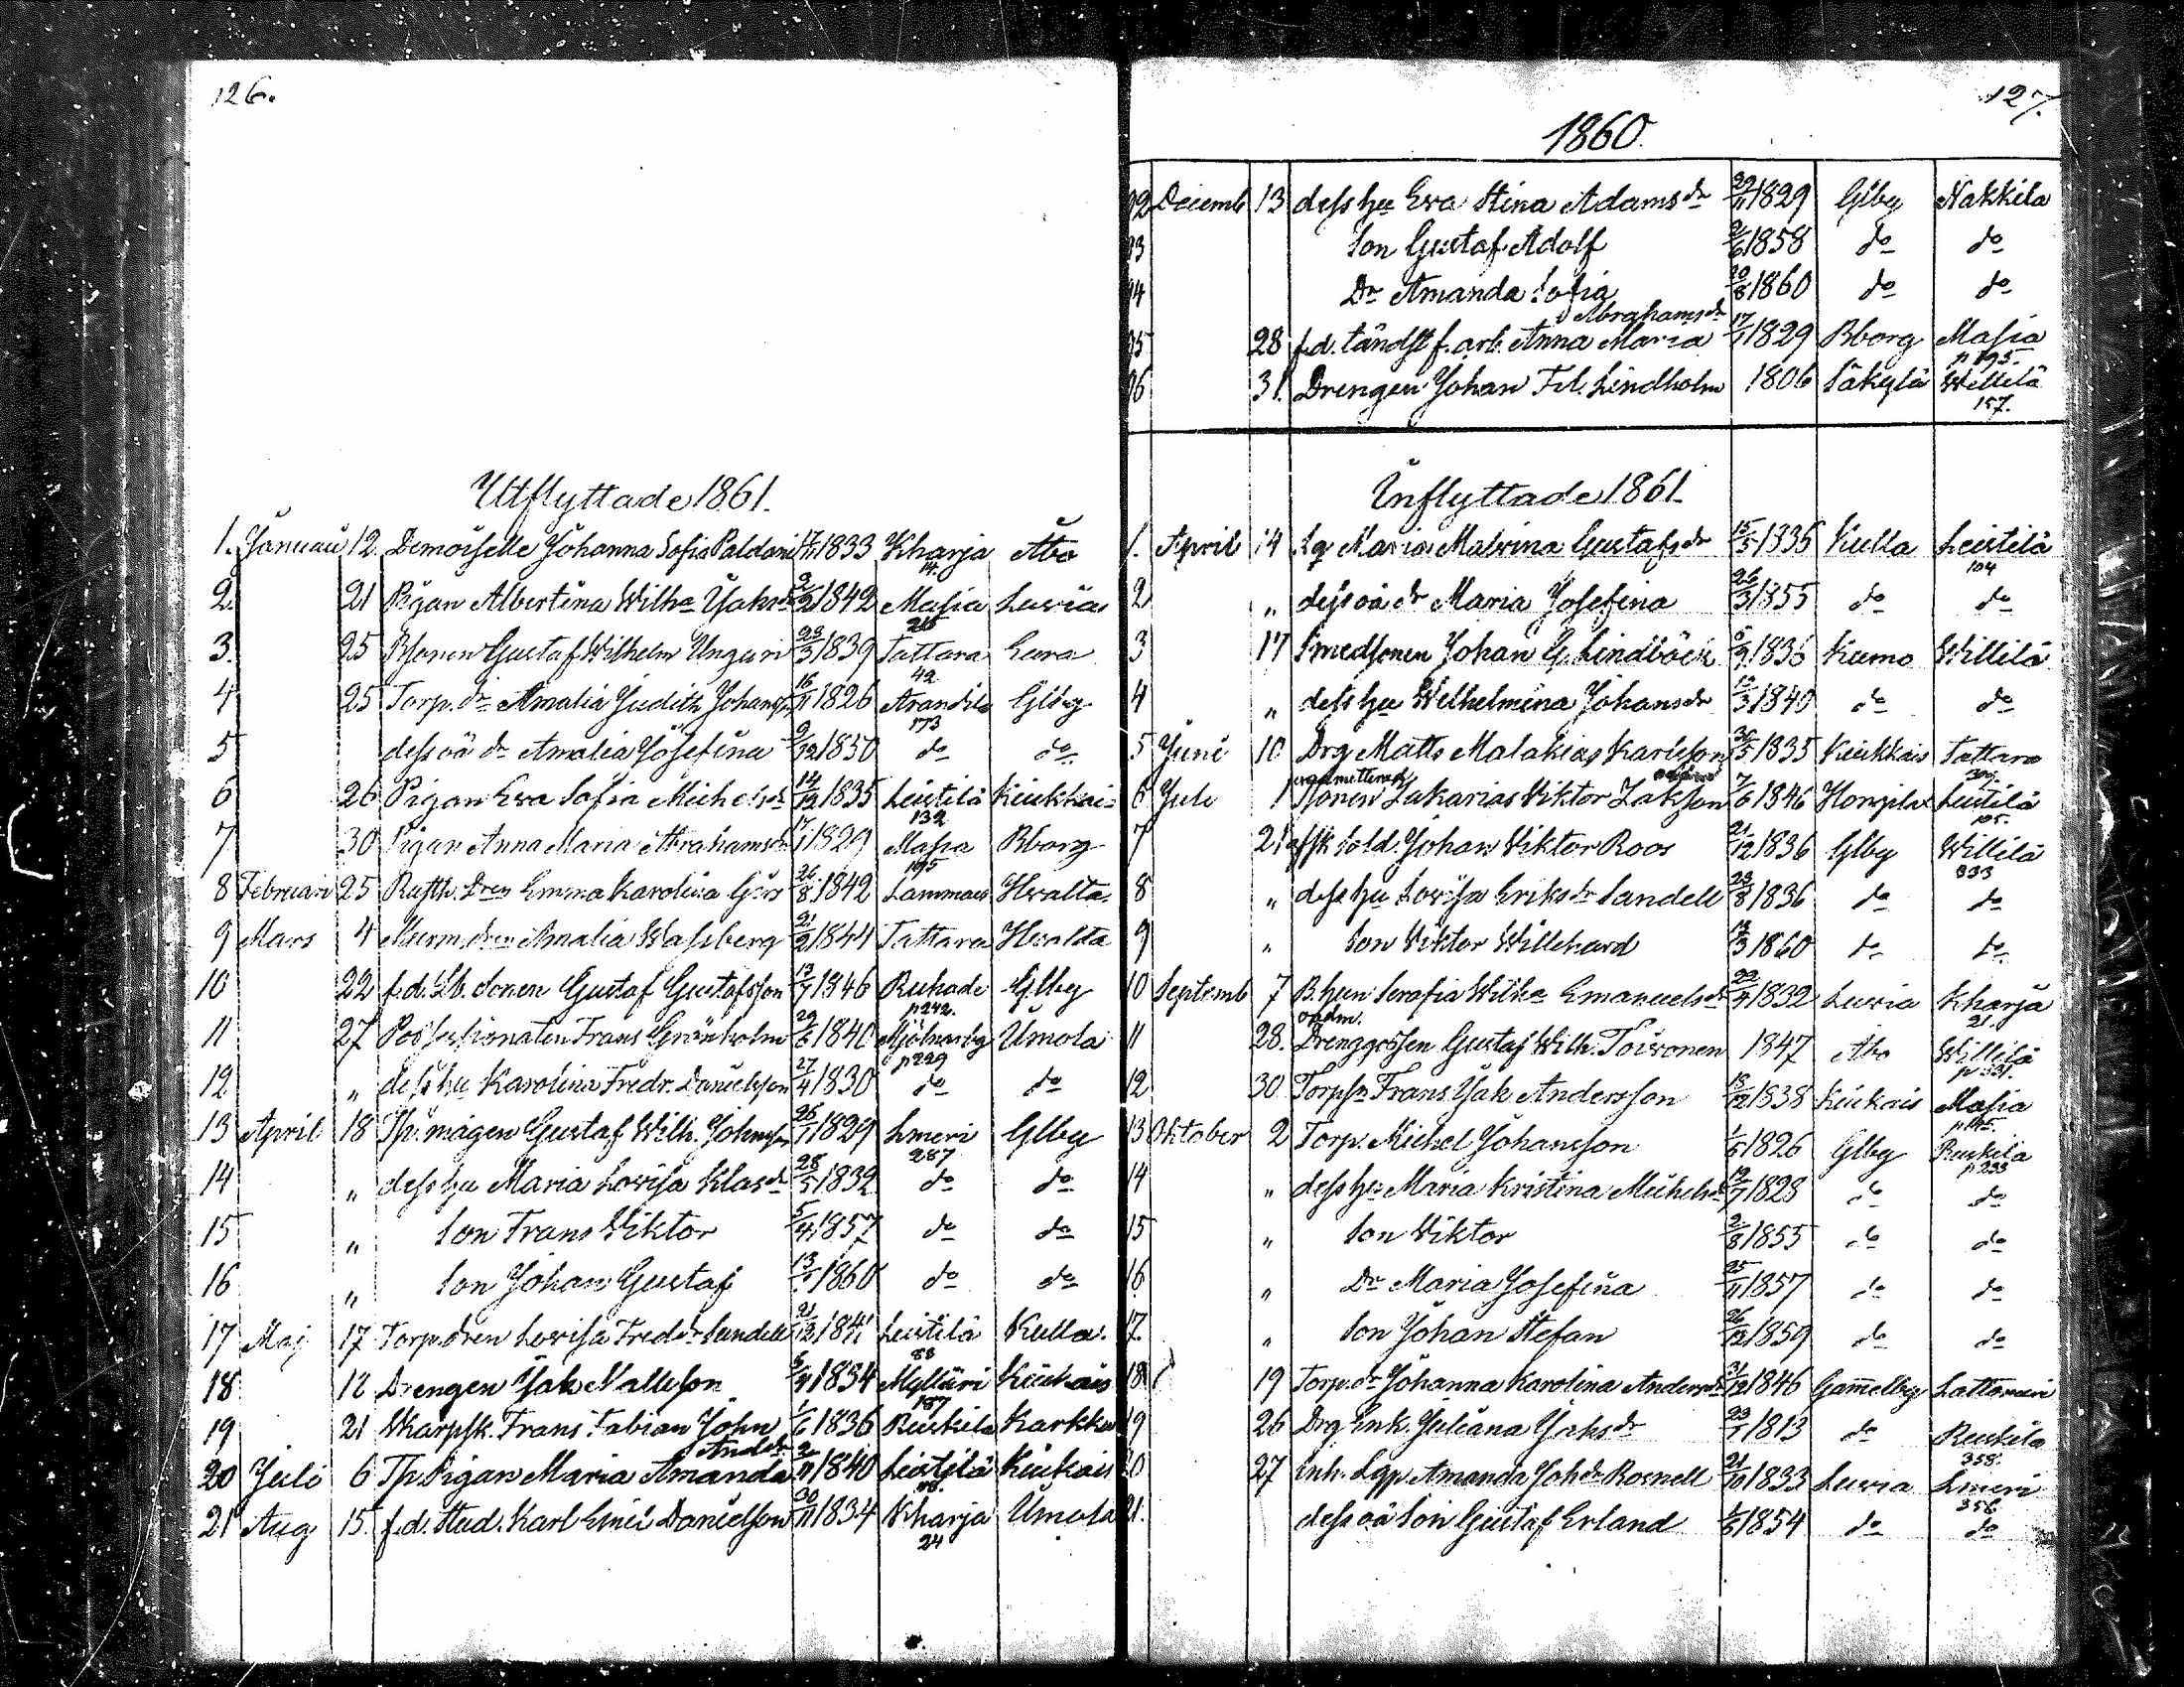 126.
Utflyttade 1861.
1. Januari 12. Demoiselle Johanna Sofia Paldani 1833 Kharja Åbo
14.
2. 21 Pigan Albertina Wilha Jaksdr 2/2 1842 Masia Luvia
215
3. 25 Bsonen Gustaf Wilhelm Ungari 23/3 1839 Tattara Eura
42
4 25 Torp. dr Amalia Judith Johans 16/11 1826 Arandila Glby
173
5 dess oä dr Amalia Josefina 9/12 1850 do do
6 26 Pigan Eva Sofia Michelsdr 14/12 1835 Leistilä Kiukkais
132
7 30 Pigan Anna Maria Abrahamsdr 17/1 1829 Masia Bborg
195
8 Februari 25 Rusth. Dren Emma Karolina 26/8 1842 Lammais Hvalta
9 Mars 4 Murm. dren Amalia Wassberg 21/2 1844 Tattara Hvalta
10 22 f.d. Lb. sonen Gustaf Gustafsson 13/7 1846 Ruhade Glby
p 242.
11 27 Possessionaten Frans Grönholm 29/6 1840 Mjölnarby Umola
p 229
12 „ dess hu Karolina Fredr. Danielsson 27/4 1830 do do
13 April 18 Th. mågen Gustaf Wilh. Johansson 26/7 1829 Lmeri Glby
287
14 „ dess hu Maria Lovisa Klasdr 28/5 1832 do do
15 „ Son Frans Wiktor 5/4 1857 do do
16 „ Son Johan Gustaf 13/ 1860 do do
17 Maj 17 Torp. dren Lovisa Fredr. Sundell 21/12 184 Leistilä Kulla.
88
18 12 Drengen Jak Kallesson 1834 Myllüri Kiukais
187
19 21 Skarpsk. Frans Fabian John 1/6 1836 Ruskila Karkku
Andsdr
20 Juli 6 Th Pigan Maria Amanda 2/11 1840 Leistilä Kiukais
21 Aug 15. f.d. Stud. Karl Emil Danielsson 30/11 1834 Kharja Umola
24
127.
1860.
92 Decemb 13 dess hu Eva Stina Adamsdr 29/11 1829 Glby Nakkila
93 Son Gustaf Adolf 2/6 1858 do do
94 Dr Amanda Sofia 20/8 1860 do do
Abrahamsdr
95 28 f.d. tändst f. arb. Anna Maria 17/1 1829 Bborg Masia
p 195.
96 31. Drengen Johan Fil. Lindholm 1806 Säkylä Willilä
157.
Inflyttade 1861.
1. April 14 Lq Maria Malvina Gustafsdr 15/5 1835 Kulla Leistilä
104
2 „ dess oä dr Maria Josefina 26/3 1855 do do
3 17 Smedsonen Johan G. Lindbäck 1836 Kumo Willilä
4 „ dess hu Wilhelmina Johansdr 12/3 1840 do do
5 Juni 10 Drg Matts Malakias Karlsson 30/5 1835 Kiukkais Tattara
6 Juli 1 Sonen Zakarias Wiktor Zaksson 7/6 1846 Leistilä
105.
7 21 afsk sold. Johan Wiktor Roos 21/12 1836 Glby Willilä
333
8 „ dess hu Lovisa Eriksdr Sandell 23/8 1836 do do
9 „ Son Wiktor Willehard 12/3 1860 do do
10 Septemb 7 B.hun Serafia Wilha Emanuelsdr 22/11 1832 Luvia Kharja
21.
11 28. Drenggossen Gustaf Wilh. Toivonen 1847 Åbo Willilä
p 331.
12 30 Torpsn Frans Jak Andersson 18/12 1838 Kiukais Masia
13 Oktober 2 Torp. Michel Johansson 1/6 1826 Glby Ruskila
p 233
14 „ dess hu Maria Kristina Michelsdr 12/7 1828 do do
15 „ Son Wiktor 2/8 1855 do do
16 „ Dr Maria Josefina 25/11 1857 do do
17. „ Son Johan Stefan 26/12 1859 do do
18 19 Torp. dr Johanna Karolina Andersdr 31/12 1846 Gamelby Lattomeri
19 26 Drg Enk. Juliana Jaksdr 23/7 1813 do Ruskila
358.
20 27 Inh. Lqp Amanda Johdr Rosnell 21/10 1833 Luvia Lmeri
356.
21. dess oä Son Gustaf Erland 1/6 1854 do do